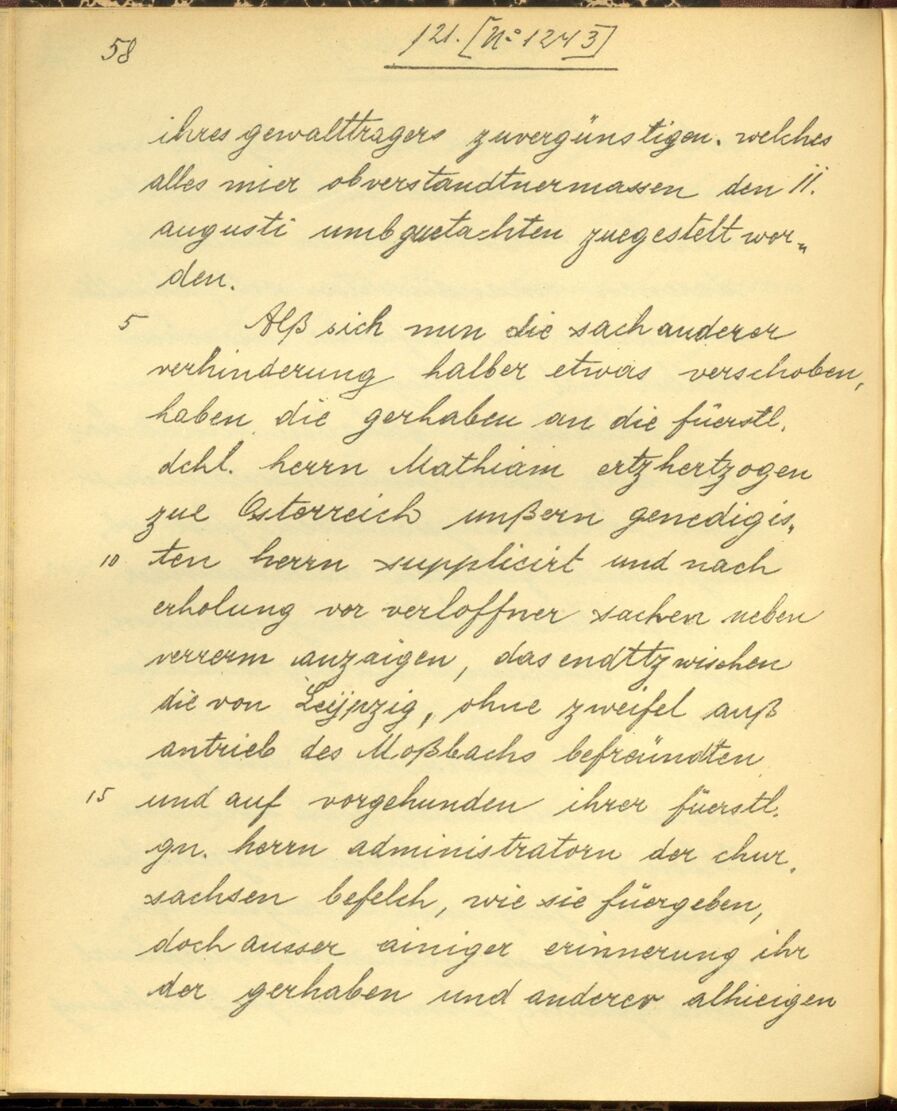 58
121. [No 1243]
ihres gewalttragers zuvergünstigen. welches
alles mier obverstandtnermassen den 11.
augusti umb guetachten zuegestelt wor„
den.
5 Alß sich nun die sach anderer
verhinderung halber etwas verschoben,
haben die gerhaben an die füerstl.
dchl. herrn Mathiam ertzhertzogen
zue Österreich unßern genedigis„
10 ten herrn supplicirt und nach
erholung vor verloffner sachen neben
anzaigen, das endttzwischen
die von Leijpzig, ohne zweifel auß
antrieb des Moßbachs befreündten
15 und auf vorgehunden ihrer füerstl.
gn. herrn administratorn der chur„
sachsen befelch, wie sie füergeben,
doch ausser ainiger erinnerung ihr
der gerhaben und anderer alhieigen